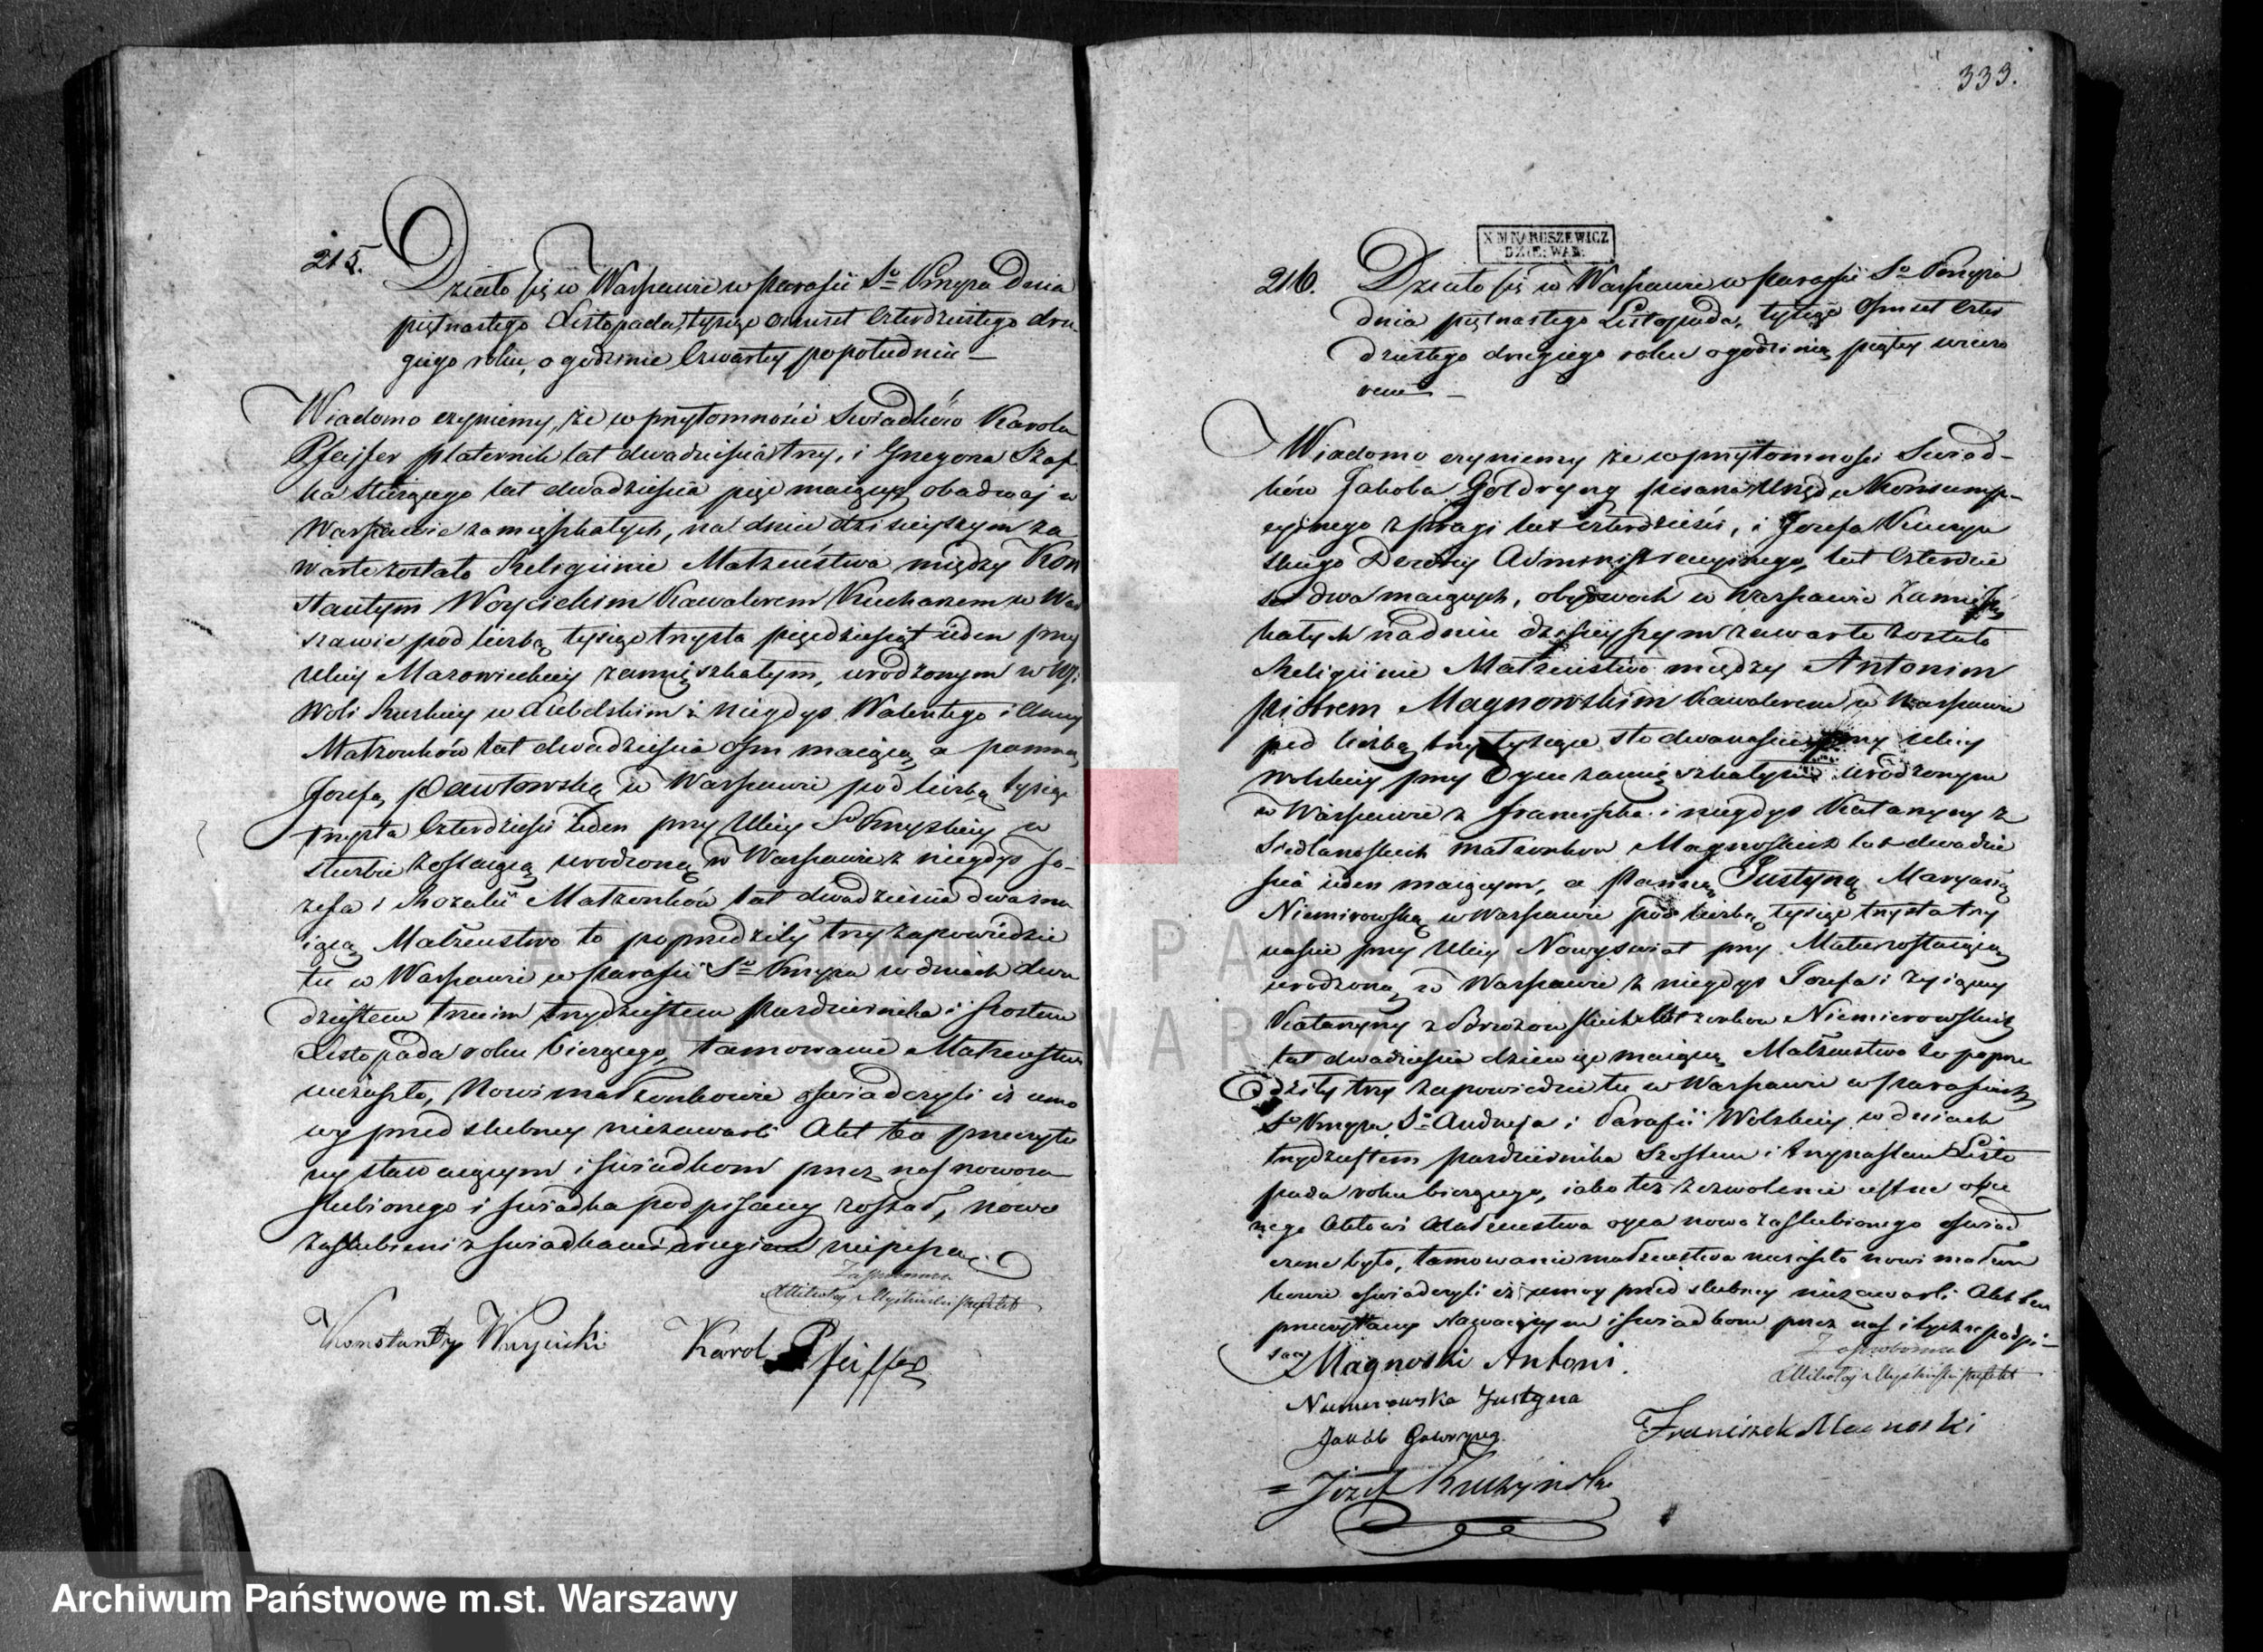 215.
Działo się w Warszawie w Parafii So Krzyża Dnia
piętnastego Listopada, tysiąc ośmset czterdziestego dru
giego roku, o godzinie Czwartey popołudniu —
Wiadomo czyniemy, że w przytomności Swiadków Karola
Pfejfer platernik lat dwadzieścia trzy, i Grzegorza Szaf
ka służącego lat dwadzieścia pięć maiących obadwaj w
Warszawie zamięszkałych, na dniu dzisieyszym za
warte zostało Religijnie Małżeństwo między Kon
stantym Woycickim Kawalerem Kucharzem w War
szawie pod liczbą tysiąc trzysta pięćdziesiąt ieden przy
Ulicy Mazowieckiey zamięszkałym, urodzonym w Wsi
Woli Ruskiey w Lubelskim z niegdys Walentego i Anny
Małżonków lat dwadzieścia ośm maiącą, a panną
Jozefą Pawłowską w Warszawie pod liczbą tysiąc
trzysta Czterdzieści ieden przy Ulicy So Krzyskiey w
służbie zostaiącą urodzoną w Warszawie z niegdys Jo-
zefa i Rozalii Małżonków lat dwadzieścia dwa ma
iącą Małżeństwo to poprzedziły trzy zapowiedzie
tu w Warszawie w Parafii So Krzyża w dniach dwu
dziestem trzecim trzydziestem Pazdziernika i szostem
Listopada roku bieżącego, tamowanie Małżeństwa
niezaszło, Nowi małżonkowie oświadczyli iż umo
wy przed slubney niezawarli Akt ten przeczyta
ny stawaiącym i świadkom przez nas nowoza
slubionego i świadka podpisany został, nowo
zaślubieni z świadkami drugiem niepiszą.
Mikołay Myśliński prefekt
Konstanty Woycicki
Karol Pfeiffer
333.
X M NARUSZEWICZ
DZIE: WAR:
216.
Działo się w Warszawie w Parafii So Krzyża
dnia piętnastego Listopada, tysiąc ośmset czter
dziestego drugiego roku o godzinie piątey wieczo
rem —
Wiadomo czyniemy że w przytomności Swiad-
ków Jakoba pisarza Urzędu Konsump-
cyjnego z pragi lat czterdzieści, i Jozefa
skiego Administracyinego, lat Czterdzie
dwa maiących, obydwoch w Warszawie Zamięsz
kałych na dniu dzisieyszym zawarte zostało
Religijnie Małżeństwo między Antonim
Piotrem Magnowskim Kawalerem w Warszawie
pod liczbą trzy tysiące sto dwanaście przy ulicy
wolskiey przy Oycu zamięszkałym urodzonym
w Warszawie z Franciszka i niegdys Katarzyny z
małżonkow Magnoskich lat dwadzie
ścia ieden maiącym, a Panną Justyną Maryanną
Niemirowską w Warszawie pod liczbą tysiąc trzysta trzy
naście przy Ulicy Nowyswiat przy Matce zostaiącą
urodzoną w Warszawie z niegdys Jozefa i żyiącey
Katarzyny z Małżonkow Niemierowskich
lat dwadzieścia dziewięć maiącą Małżeństwo to poprze
dziły trzy zapowiedzie tu w Warszawie w Parafiach
So Krzyża, So Andrzeja i Parafii Wolskiey w dniach
trzydziestem Pazdziernika Szostem i trzynastem Listo
pada roku bieżącego, iako też zezwolenie ustne obec
nego Aktowi Małżeństwa oyca nowozaślubionego oświad
czone było, tamowanie małżeństwa niezaszło nowi małżon
kowie oświadczyli iż umowy przed slubney niezawarli Akt ten
przeczytany stawaiącym i świadkom przez nas i tychże podpi-
sany
Mikołay Myśliński prefekt
Magnoski Antoni.
Niemirowska Justyna
Franciszek Magnoski
Jakób
Józef
Archiwum Państwowe m.st. Warszawy